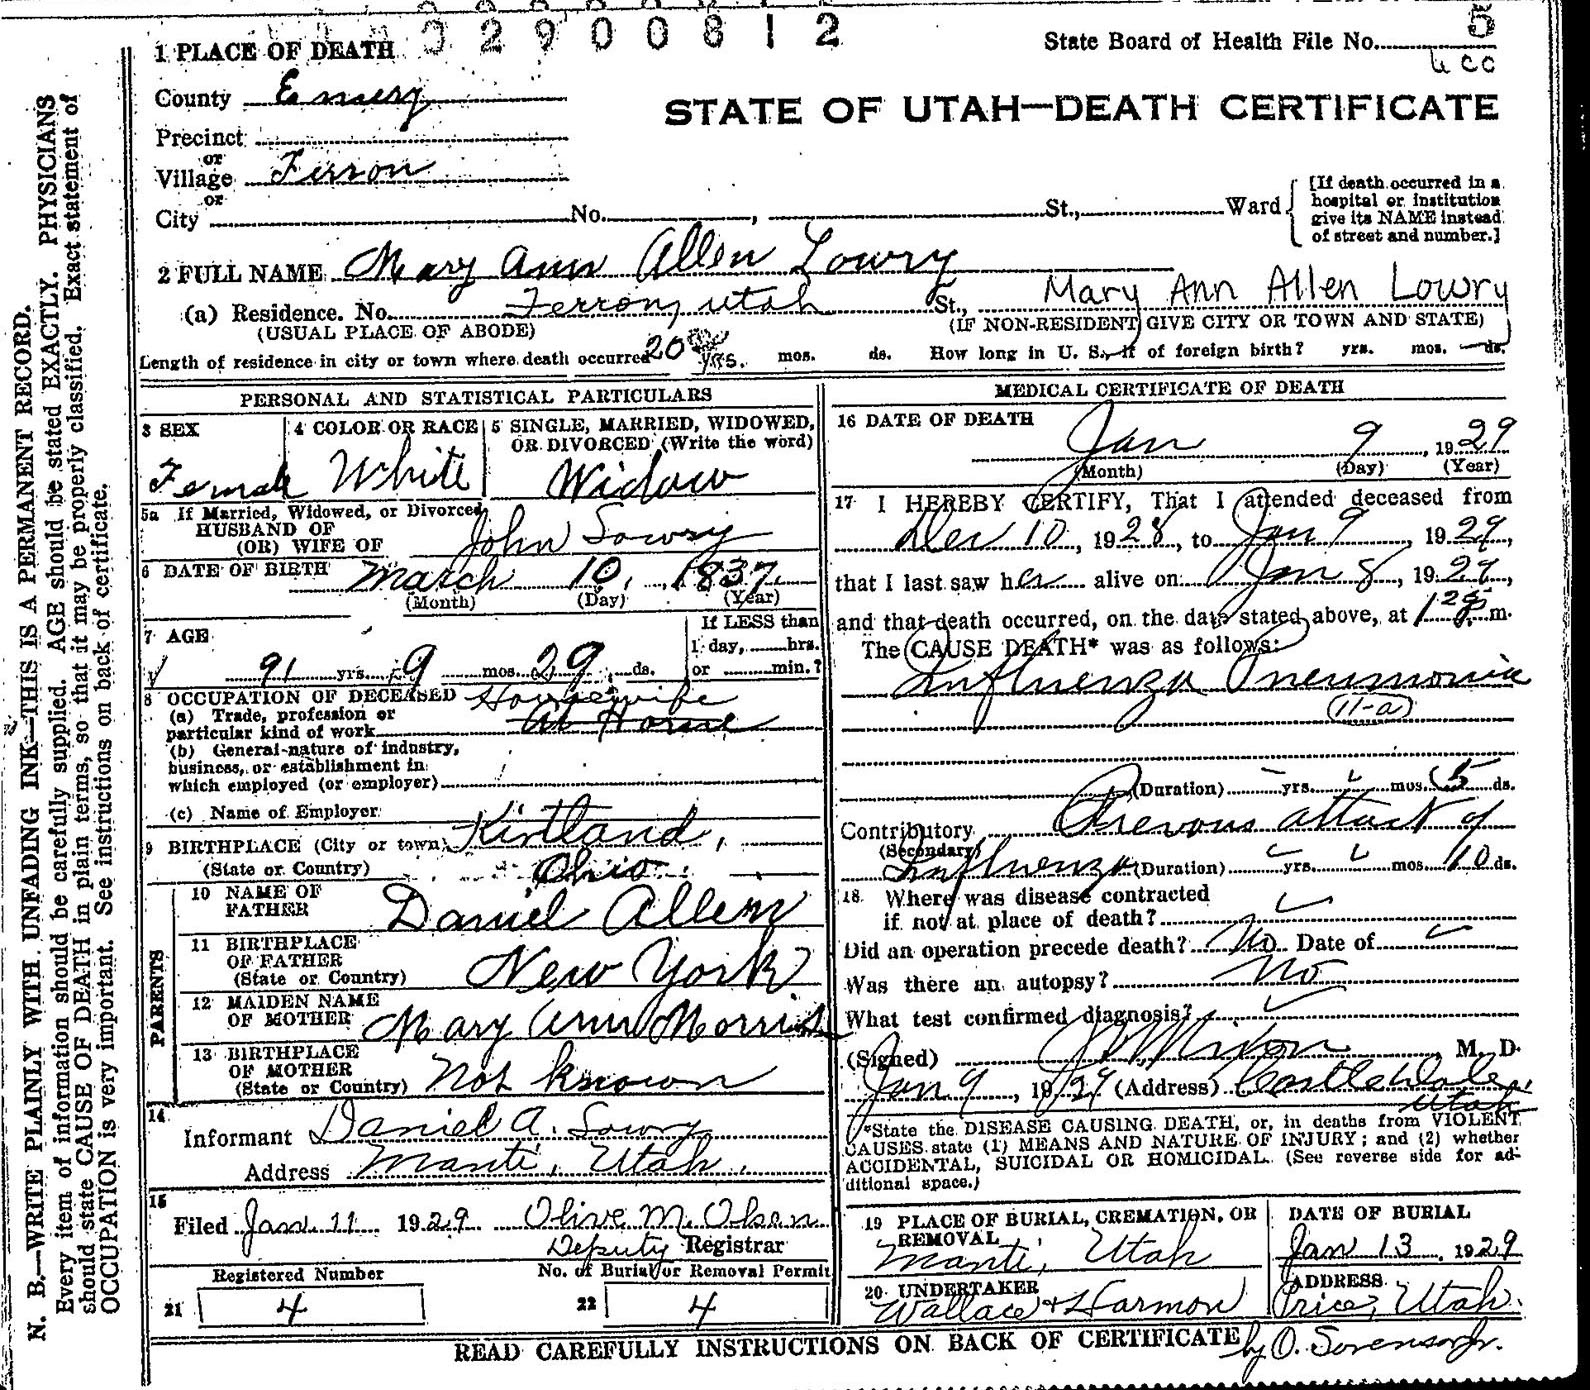 02900812
State Board of Health File No. 5
1 PLACE OF DEATH
County Emery
STATE OF UTAH—DEATH CERTIFICATE
Precinct
or
Village Ferron
or
City No. , St., Ward
[If death occurred in a
hospital or institution
give its NAME instead
of street and number.]
2 FULL NAME Mary Ann Allen Lowry
(a) Residence. No. Ferron, Utah St., Mary Ann Allen Lowry
(USUAL PLACE OF ABODE) (IF NON-RESIDENT GIVE CITY OR TOWN AND STATE)
Length of residence in city or town where death occurred 20 yrs. mos. ds. How long in U. S. if of foreign birth? yrs. mos. ds.
PERSONAL AND STATISTICAL PARTICULARS
3 SEX
Female
4 COLOR OR RACE
White
5 SINGLE, MARRIED, WIDOWED,
OR DIVORCED (Write the word)
Widow
5a If Married, Widowed, or Divorced
HUSBAND OF
(OR) WIFE OF John Lowry
6 DATE OF BIRTH March 10, 1837.
(Month) (Day) (Year)
7 AGE
91 yrs. 9 mos. 29 ds.
If LESS than
1 day, hrs.
or min.?
8 OCCUPATION OF DECEASED Housewife
(a) Trade, profession or
particular kind of work At Home
(b) General nature of industry,
business, or establishment in
which employed (or employer)
(c) Name of Employer
9 BIRTHPLACE (City or town) Kirtland,
(State or Country) Ohio
PARENTS
10 NAME OF
FATHER Daniel Allen
11 BIRTHPLACE
OF FATHER
(State or Country) New York
12 MAIDEN NAME
OF MOTHER Mary Ann Morris
13 BIRTHPLACE
OF MOTHER
(State or Country) Not known
14
Informant Daniel A. Lowry
Address Manti, Utah.
15
Filed Jan. 11 1929 Olive M. Olsen
Deputy Registrar
Registered Number
21 4
No. of Burial or Removal Permit
22 4
MEDICAL CERTIFICATE OF DEATH
16 DATE OF DEATH
Jan 9, 1929
(Month) (Day) (Year)
17 I HEREBY CERTIFY, That I attended deceased from
Dec 10, 1928, to Jan 9, 1929,
that I last saw her alive on Jan 8, 1929,
and that death occurred, on the date stated above, at m.
The CAUSE DEATH* was as follows:
Influenza Pneumonia
(11-a)
(Duration) yrs. mos. 5 ds.
Contributory Prevous attack of
(Secondary)
Influenza (Duration) yrs. mos. 10 ds.
18. Where was disease contracted
if not at place of death?
Did an operation precede death? No. Date of
Was there an autopsy? No
What test confirmed diagnosis?
(Signed) Nixon, M. D.
Jan 9, 1929 (Address) Castle Dale,
Utah
*State the DISEASE CAUSING DEATH, or, in deaths from VIOLENT
CAUSES state (1) MEANS AND NATURE OF INJURY; and (2) whether
ACCIDENTAL, SUICIDAL OR HOMICIDAL. (See reverse side for ad-
ditional space.)
19 PLACE OF BURIAL, CREMATION, OR
REMOVAL
Manti, Utah
DATE OF BURIAL
Jan 13, 1929
20 UNDERTAKER
Wallace & Harmon
ADDRESS
Price, Utah.
READ CAREFULLY INSTRUCTIONS ON BACK OF CERTIFICATE by O. Sorenson Jr.
N. B.—WRITE PLAINLY WITH UNFADING INK—THIS IS A PERMANENT RECORD.
Every item of information should be carefully supplied. AGE should be stated EXACTLY. PHYSICIANS
should state CAUSE OF DEATH in plain terms, so that it may be properly classified. Exact statement of
OCCUPATION is very important. See instructions on back of certificate.